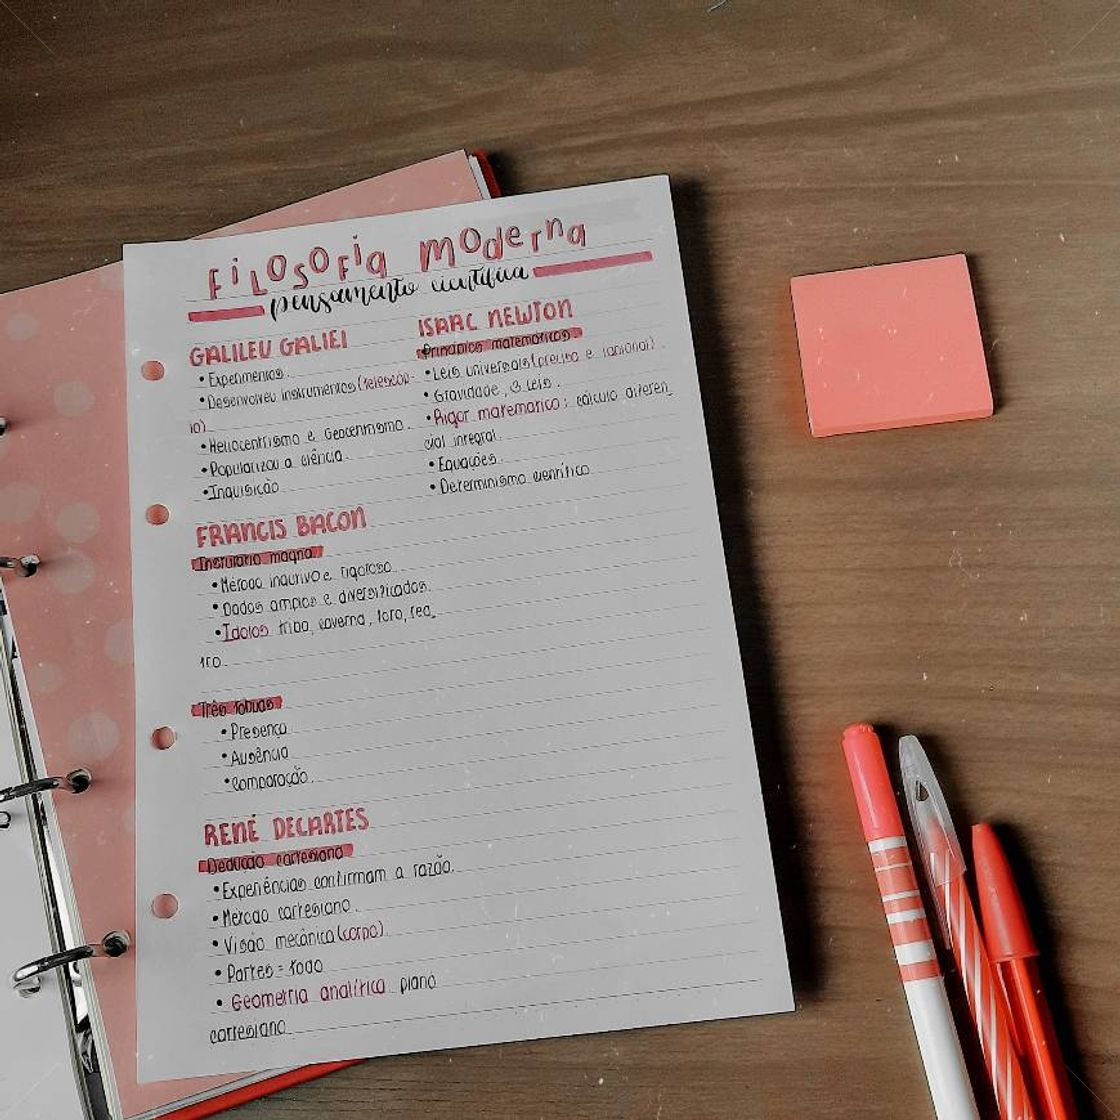 Filosofia Moderna
pensamento científica
GALILEU GALIEI
• Experimentos.
• Desenvolveu instrumentos (telescóp-
io)
• Heliocentrismo e Geocentrismo.
• Popularizou a ciência.
• Inquisição
ISAAC NEWTON
Princípios matemáticos
• Leis universais (preciso e racional).
• Gravidade, 3 Leis.
• Rigor matemático: cálculo diferen_
cial integral.
• Equações.
• Determinismo científico
FRANCIS BACON
magna
• Método indutivo e rigoroso
• Dados amplos e diversificados.
• Ídolos tribo, caverna, foro, tea_
tro.
Três tábuas
• Presença
• Ausência
• Comparação.
RENÉ DECARTES
Dedução cartesiana
• Experiências confirmam a razão.
• Método cartesiano.
• Visão mecânica (corpo)
• Partes = todo
• Geometria analítica plano
cartesiano